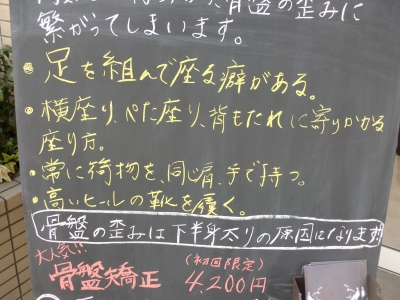 骨盤の歪みに
繋がってしまいます。
・足を組んで座る癖がある。
・横座り、ぺた座り、背もたれに寄りかかる
座り方。
・常に荷物を、同じ肩、手で持つ。
・高いヒールの靴を履く。
骨盤の歪みは下半身太りの原因になります!!
大人気!!
骨盤矯正
(初回限定)
4,200円